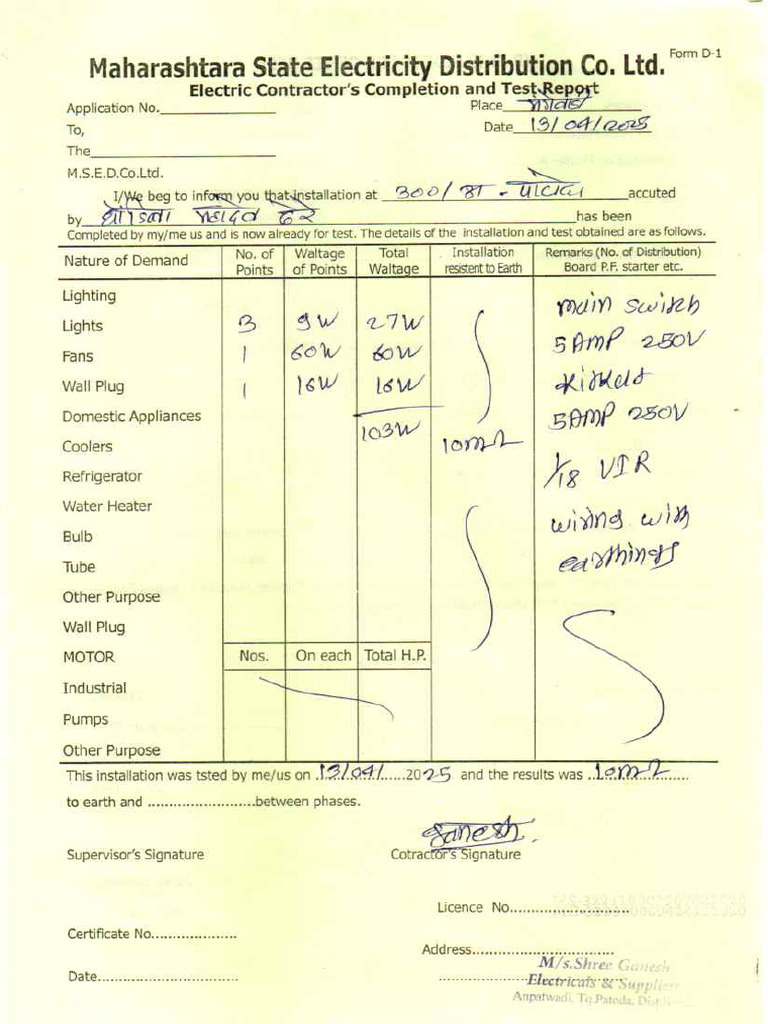 Form D-1
Maharashtra State Electricity Distribution Co. Ltd.
Electric Contractor's Completion and Test Report
Application No. Place
To, Date 13/04/2025
The
M.S.E.D.Co.Ltd.
I/We beg to inform you that installation at 300/ accuted
by has been
Completed by my/me us and is now already for test. The details of the installation and test obtained are as follows.
Nature of Demand No. of Points Waltage of Points Total Waltage Installation resistent to Earth Remarks (No. of Distribution) Board P.F. starter etc.
Lighting main switch
Lights 3 9W 27W 5AMP 250V
Fans 1 60W 60W
Wall Plug 1 16W 16W
Domestic Appliances 103W 5AMP 250V
Coolers 10mΩ
Refrigerator 1/18 VIR
Water Heater wiring with
Bulb earthings
Tube
Other Purpose
Wall Plug
MOTOR Nos. On each Total H.P.
Industrial
Pumps
Other Purpose
This installation was tsted by me/us on .13/04/......2025 and the results was ..10mΩ.........
to earth and ........................between phases.
Ganesh
Supervisor's Signature Cotractor's Signature
Licence No............................
Certificate No....................
Address.................................
M/s.Shree Ganesh
Date.................................
Electricals & Supplier
Anpatwadi, Tq.Patoda, Dist.